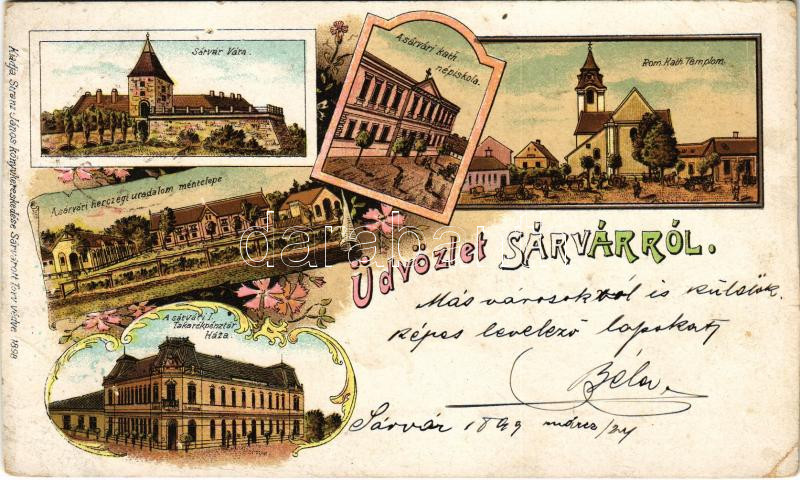 Sárvár Vára.
A sárvári kath. népiskola.
Rom. Kath. Templom.
A sárvári herczegi uradalom méntelepe
A sárvári I.
Takarékpénztár
Háza.
Üdvözlet SÁRVÁRRÓL.
darabanth
Más városokból is küldök
képes levelező lapokat
Béla
Sárvár 1899 márcz/24
Kiadja Stranz János könyvkereskedése Sárvárott. Törv. védve. 1898